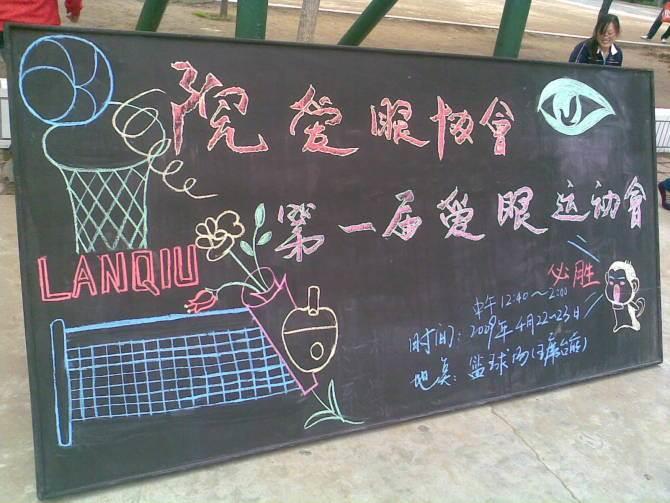 院爱眼协會
第一届爱眼运动會
LANQIU
必胜
中午12:40~2:00
时间:2009年4月22-23日
地点:篮球场(主席台前)